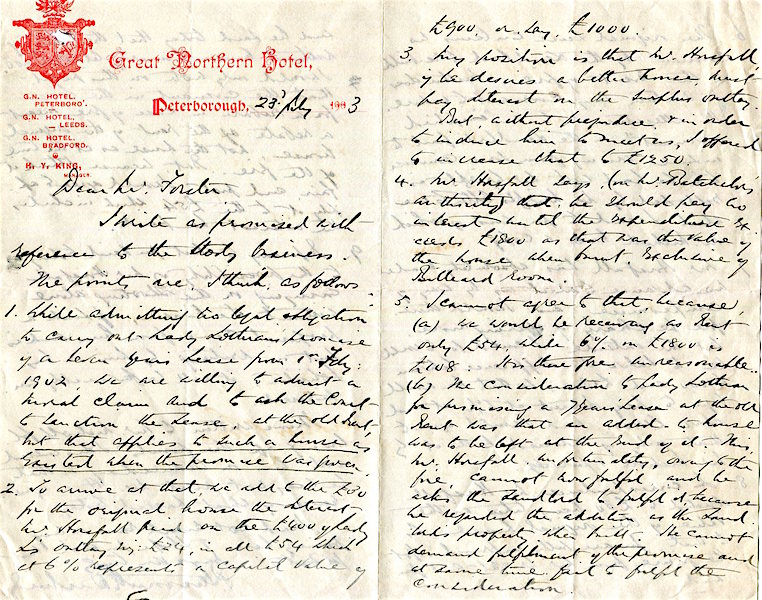 Great Northern Hotel,
G.N. HOTEL,
PETERBORO'.
G.N. HOTEL,
LEEDS.
G.N. HOTEL,
BRADFORD.
H. Y. KING,
MANAGER.
Peterborough, 23 July 1903
Dear Mr. Forster
I write as promised with
reference to the business.
The points are, I think, as follows
1. While admitting no legal obligation
to carry out Lady Lothian's promise
of a seven years lease from 1st Feby.
1902 we are willing to admit a
moral claim and to ask the Court
to sanction the Lease, at the old Rent,
but that applies to such a house as
existed when the promise was given
2. To arrive at that, we add to the £30
for the original house the Interest
Mr. Horsfall paid on the £400 of Lady
L's outlay viz £24, in all £54 which
at 6% represents a capital value of
£900 or say £1000.
3. My position is that Mr. Horsfall,
if he desires a better house, must
pay Interest on the surplus outlay.
But, without prejudice, & in order
to induce him to meet us, I offered
to increase that to £1250.
4. Mr Horsfall says (on Mr. Batchelor's
authority) that he should pay no
interest until the expenditure ex
ceeds £1800 as that was the value of
the house when burnt exclusive of
Billiard room.
5. I cannot agree to that, because,
(a) We would be receiving as Rent
only £54 while 6% on £1800 is
£108. It is therefore unreasonable.
(b) The consideration to Lady Lothian
for promising a 7 years Lease at the old
Rent was that an added-to house
was to be left at the end of it. This,
Mr. Horsfall unfortunately, owing to the
fire, cannot now fulfil and he
asks the Landlord to fulfil it, because
he regarded the addition as the Land
lord's property when built. He cannot
demand fulfilment of the promise and
at same time fail to fulfil the
consideration.